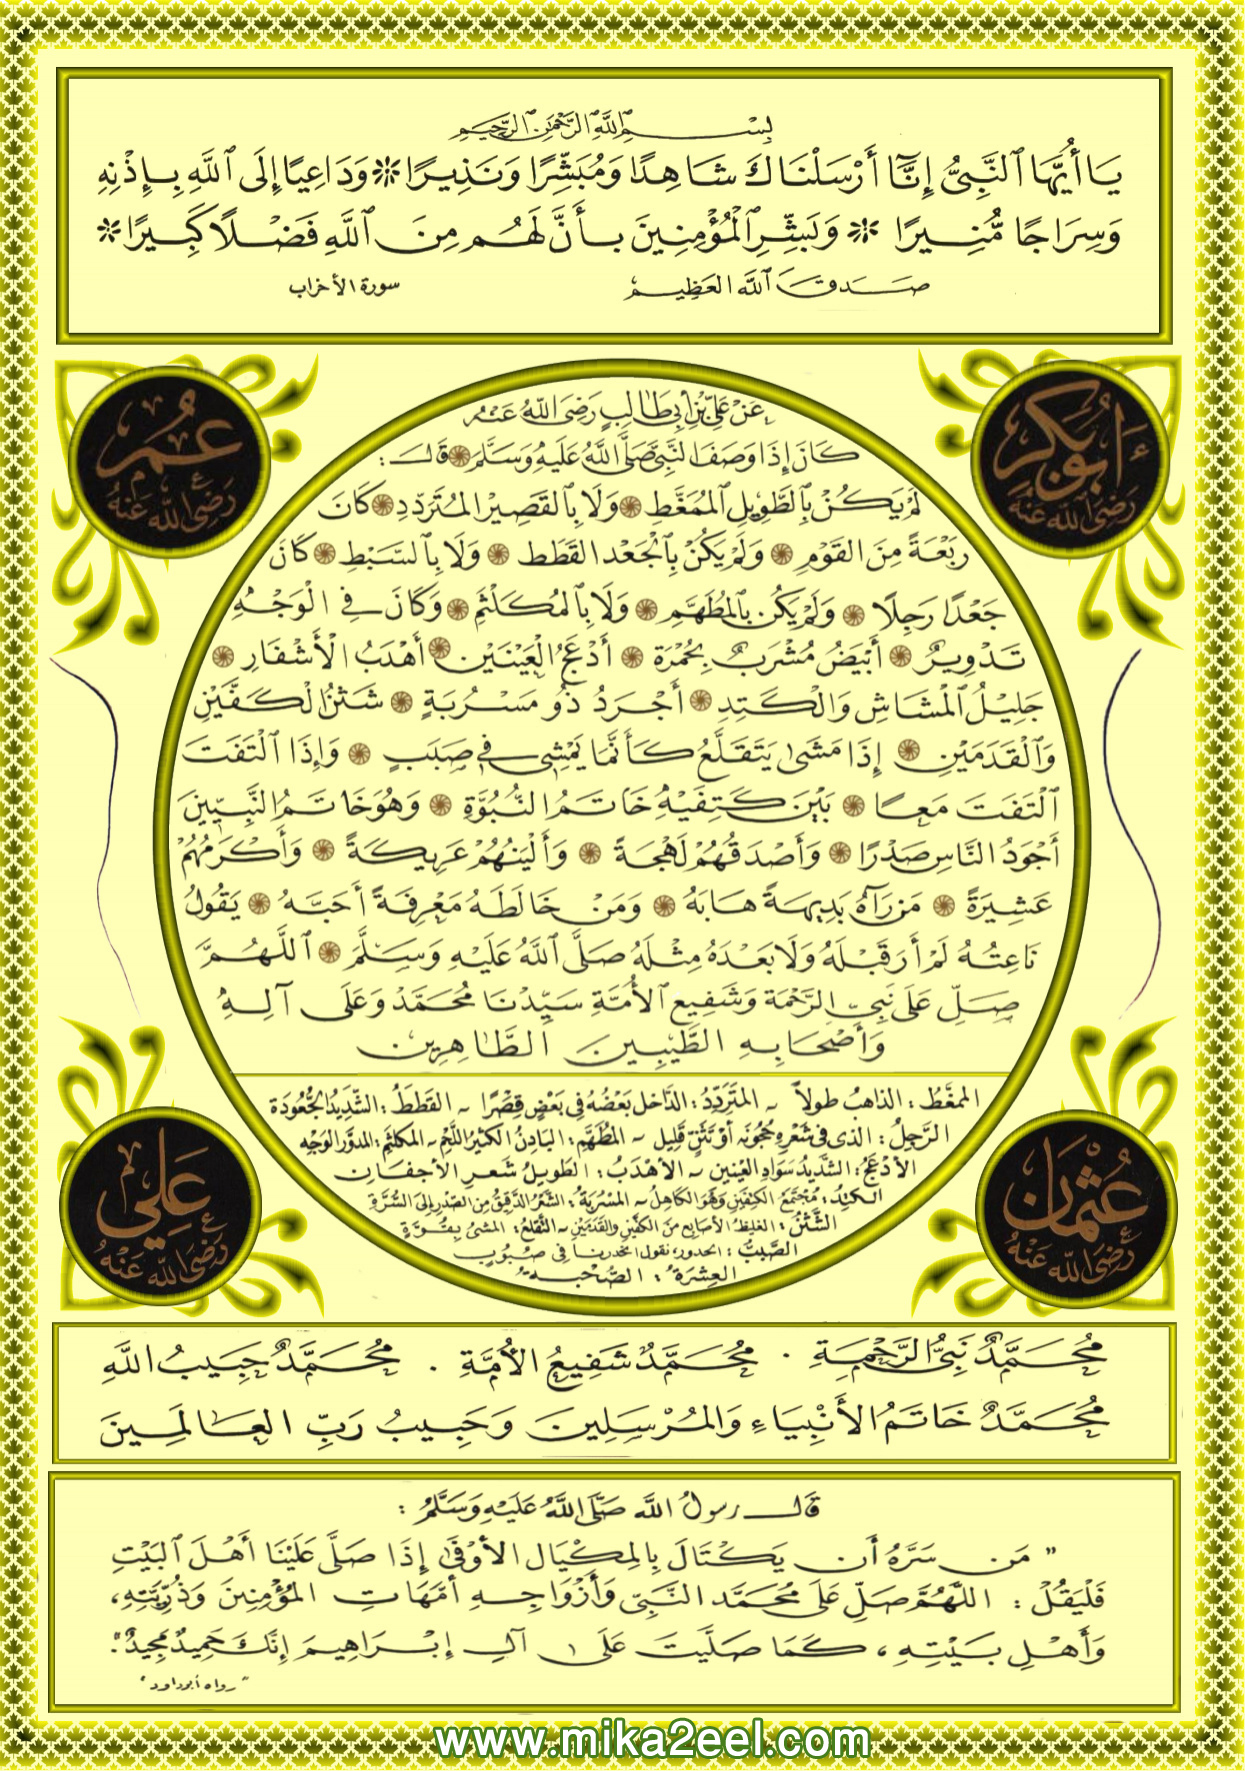 بِسْمِ ٱللَّهِ ٱلرَّحْمَنِ ٱلرَّحِيمِ
يَا أَيُّهَا ٱلنَّبِيُّ إِنَّا أَرْسَلْنَاكَ شَاهِدًا وَمُبَشِّرًا وَنَذِيرًا * وَدَاعِيًا إِلَى ٱللَّهِ بِإِذْنِهِ
وَسِرَاجًا مُّنِيرًا * وَبَشِّرِ ٱلْمُؤْمِنِينَ بِأَنَّ لَهُم مِنَ ٱللَّهِ فَضْلًا كَبِيرًا *
صَدَقَ ٱللَّه العَظِيم سورة الأحزاب
أبوبكر رَضِيَ الله عَنْهُ
عُمَر رَضِيَ الله عَنْهُ
عَنْ عَلِيِّ بْنِ أَبِي طَالِبٍ رَضِيَ اللَّهُ عَنْهُ
كَانَ إِذَا وَصَفَ النَّبِيَّ صَلَّى اللَّهُ عَلَيْهِ وَسَلَّمَ قَالَ :
لَمْ يَكُنْ بِالطَّوِيلِ ٱلْمُمَغَّطِ وَلَا بِالْقَصِيرِ الْمُتَرَدِّدِ كَانَ
رَبْعَةً مِنَ القَوْمِ وَلَمْ يَكُنْ بِالْجَعْدِ القَطَطِ وَلَا بِالسَّبْطِ كَانَ
جَعْدًا رَجِلًا وَلَمْ يَكُنْ بِالْمُطَهَّمِ وَلَا بِالْمُكَلْثَمِ وَكَانَ فِي الْوَجْهِ
تَدْوِيرٌ أَبْيَضُ مُشْرَبٌ بِحُمْرَةٍ أَدْعَجُ الْعَيْنَيْنِ أَهْدَبُ الْأَشْفَارِ
جَلِيلُ الْمُشَاشِ وَالْكَتَدِ أَجْرَدُ ذُو مَسْرُبَةٍ شَثْنُ الْكَفَّيْنِ
وَالْقَدَمَيْنِ إِذَا مَشَى يَتَقَلَّعُ كَأَنَّمَا يَمْشِي فِي صَبَبٍ وَإِذَا الْتَفَتَ
الْتَفَتَ مَعًا بَيْنَ كَتِفَيْهِ خَاتَمُ النُّبُوَّةِ وَهُوَ خَاتَمُ النَّبِيِّينَ
أَجْوَدُ النَّاسِ صَدْرًا وَأَصْدَقُهُمْ لَهْجَةً وَأَلْيَنُهُمْ عَرِيكَةً وَأَكْرَمُهُمْ
عَشِيرَةً مَنْ رَآهُ بَدِيهَةً هَابَهُ وَمَنْ خَالَطَهُ مَعْرِفَةً أَحَبَّهُ يَقُولُ
نَاعِتُهُ لَمْ أَرَ قَبْلَهُ وَلَا بَعْدَهُ مِثْلَهُ صَلَّى اللَّهُ عَلَيْهِ وَسَلَّمَ اللَّهُمَّ
صَلِّ عَلَى نَبِيِّ الرَّحْمَةِ وَشَفِيعِ الأُمَّةِ سَيِّدِنَا مُحَمَّدٍ وَعَلَى آلِهِ
وَأَصْحَابِهِ الطَّيِّبِينَ الطَّاهِرِينَ
الممغَّط : الذاهبُ طولاً - المتَرَدِّدُ : الدَّاخلُ بَعْضُهُ فِي بَعْضٍ قِصَرًا - القَطَطُ : الشَّدِيدُ الجُعُودَة
الرَّجِلُ : الذى فى شعرهِ حُجُونَه أوْ تَثَنٍّ قليل - المطهَّم : البَادِنُ الكثيرُ اللَّحْم - المكلثم : المدوَّر الوَجْه
الأدْعَجُ : الشديدُ سَوَادِ العَيْنين - الأهْدَبُ : الطويلُ شَعرِ الأجفان
الكتد : مُجْتَمَعُ الكتِفَيْن وَهُوَ الكاهِلُ - المسْرُبَة : الشَّعْرُ الدَّقيقُ مِنَ الصَّدْرِ إلى السُّرَّة
الشَّثنُ : الغليظُ الأصَابع مِنَ الكفَّيْنِ والقَدَمَيْن - التَّقلعُ : المشىُ بِقُوَّةٍ
الصَّبَبُ : الحدور، نقول انحَدرنا فى صَبُوب
العِشرَة : الصُّحْبَة
عَلِي رَضِيَ الله عَنْهُ
عُثْمَان رَضِيَ الله عَنْهُ
مُحَمَّدٌ نَبِيُّ الرَّحْمَةِ . مُحَمَّدٌ شَفِيعُ الأُمَّةِ . مُحَمَّدٌ حَبِيبُ اللَّه
مُحَمَّدٌ خَاتَمُ الأَنْبِيَاءِ وَالمُرْسَلِينَ وَحَبِيبُ رَبِّ العَالَمِينَ
قَالَ رسولُ اللَّه صَلَّى اللَّهُ عَلَيْهِ وَسَلَّمَ :
" مَن سَرَّهُ أَن يَكْتَالَ بِالمِكْيَالِ الأَوْفَى إِذَا صَلَّى عَلَيْنَا أَهْلَ البَيْتِ
فَلْيَقُلْ : اللَّهُمَّ صَلِّ عَلَى مُحَمَّدٍ النَّبِيِّ وَأَزْوَاجِهِ أُمَّهَاتِ المُؤْمِنِينَ وَذُرِّيَّتِهِ،
وَأَهْلِ بَيْتِهِ ، كَمَا صَلَّيْتَ عَلَى آلِ إِبْرَاهِيمَ إِنَّكَ حَمِيدٌ مَجِيدٌ ".
" رواه أبوداود "
www.mika2eel.com